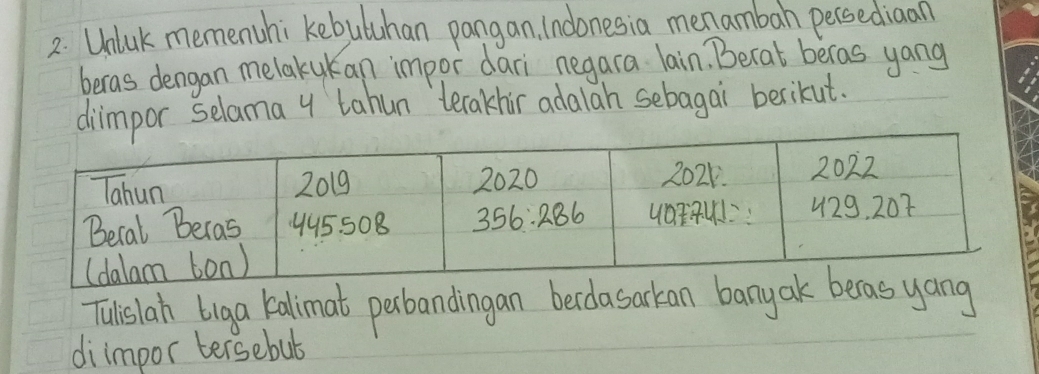 2. Untuk memenuhi kebutuhan pangan, Indonesia menambah persediaan
beras dengan melakukan impor dari negara lain. Berat beras yang
diimpor selama 4 tahun terakhir adalah sebagai berikut.
Tahun 2019 2020 2021 2022
Berat Beras 445.508 356.286 407.741 429.207
(dalam ton)
Tulislah tiga kalimat perbandingan berdasarkan banyak beras yang
di impor tersebut